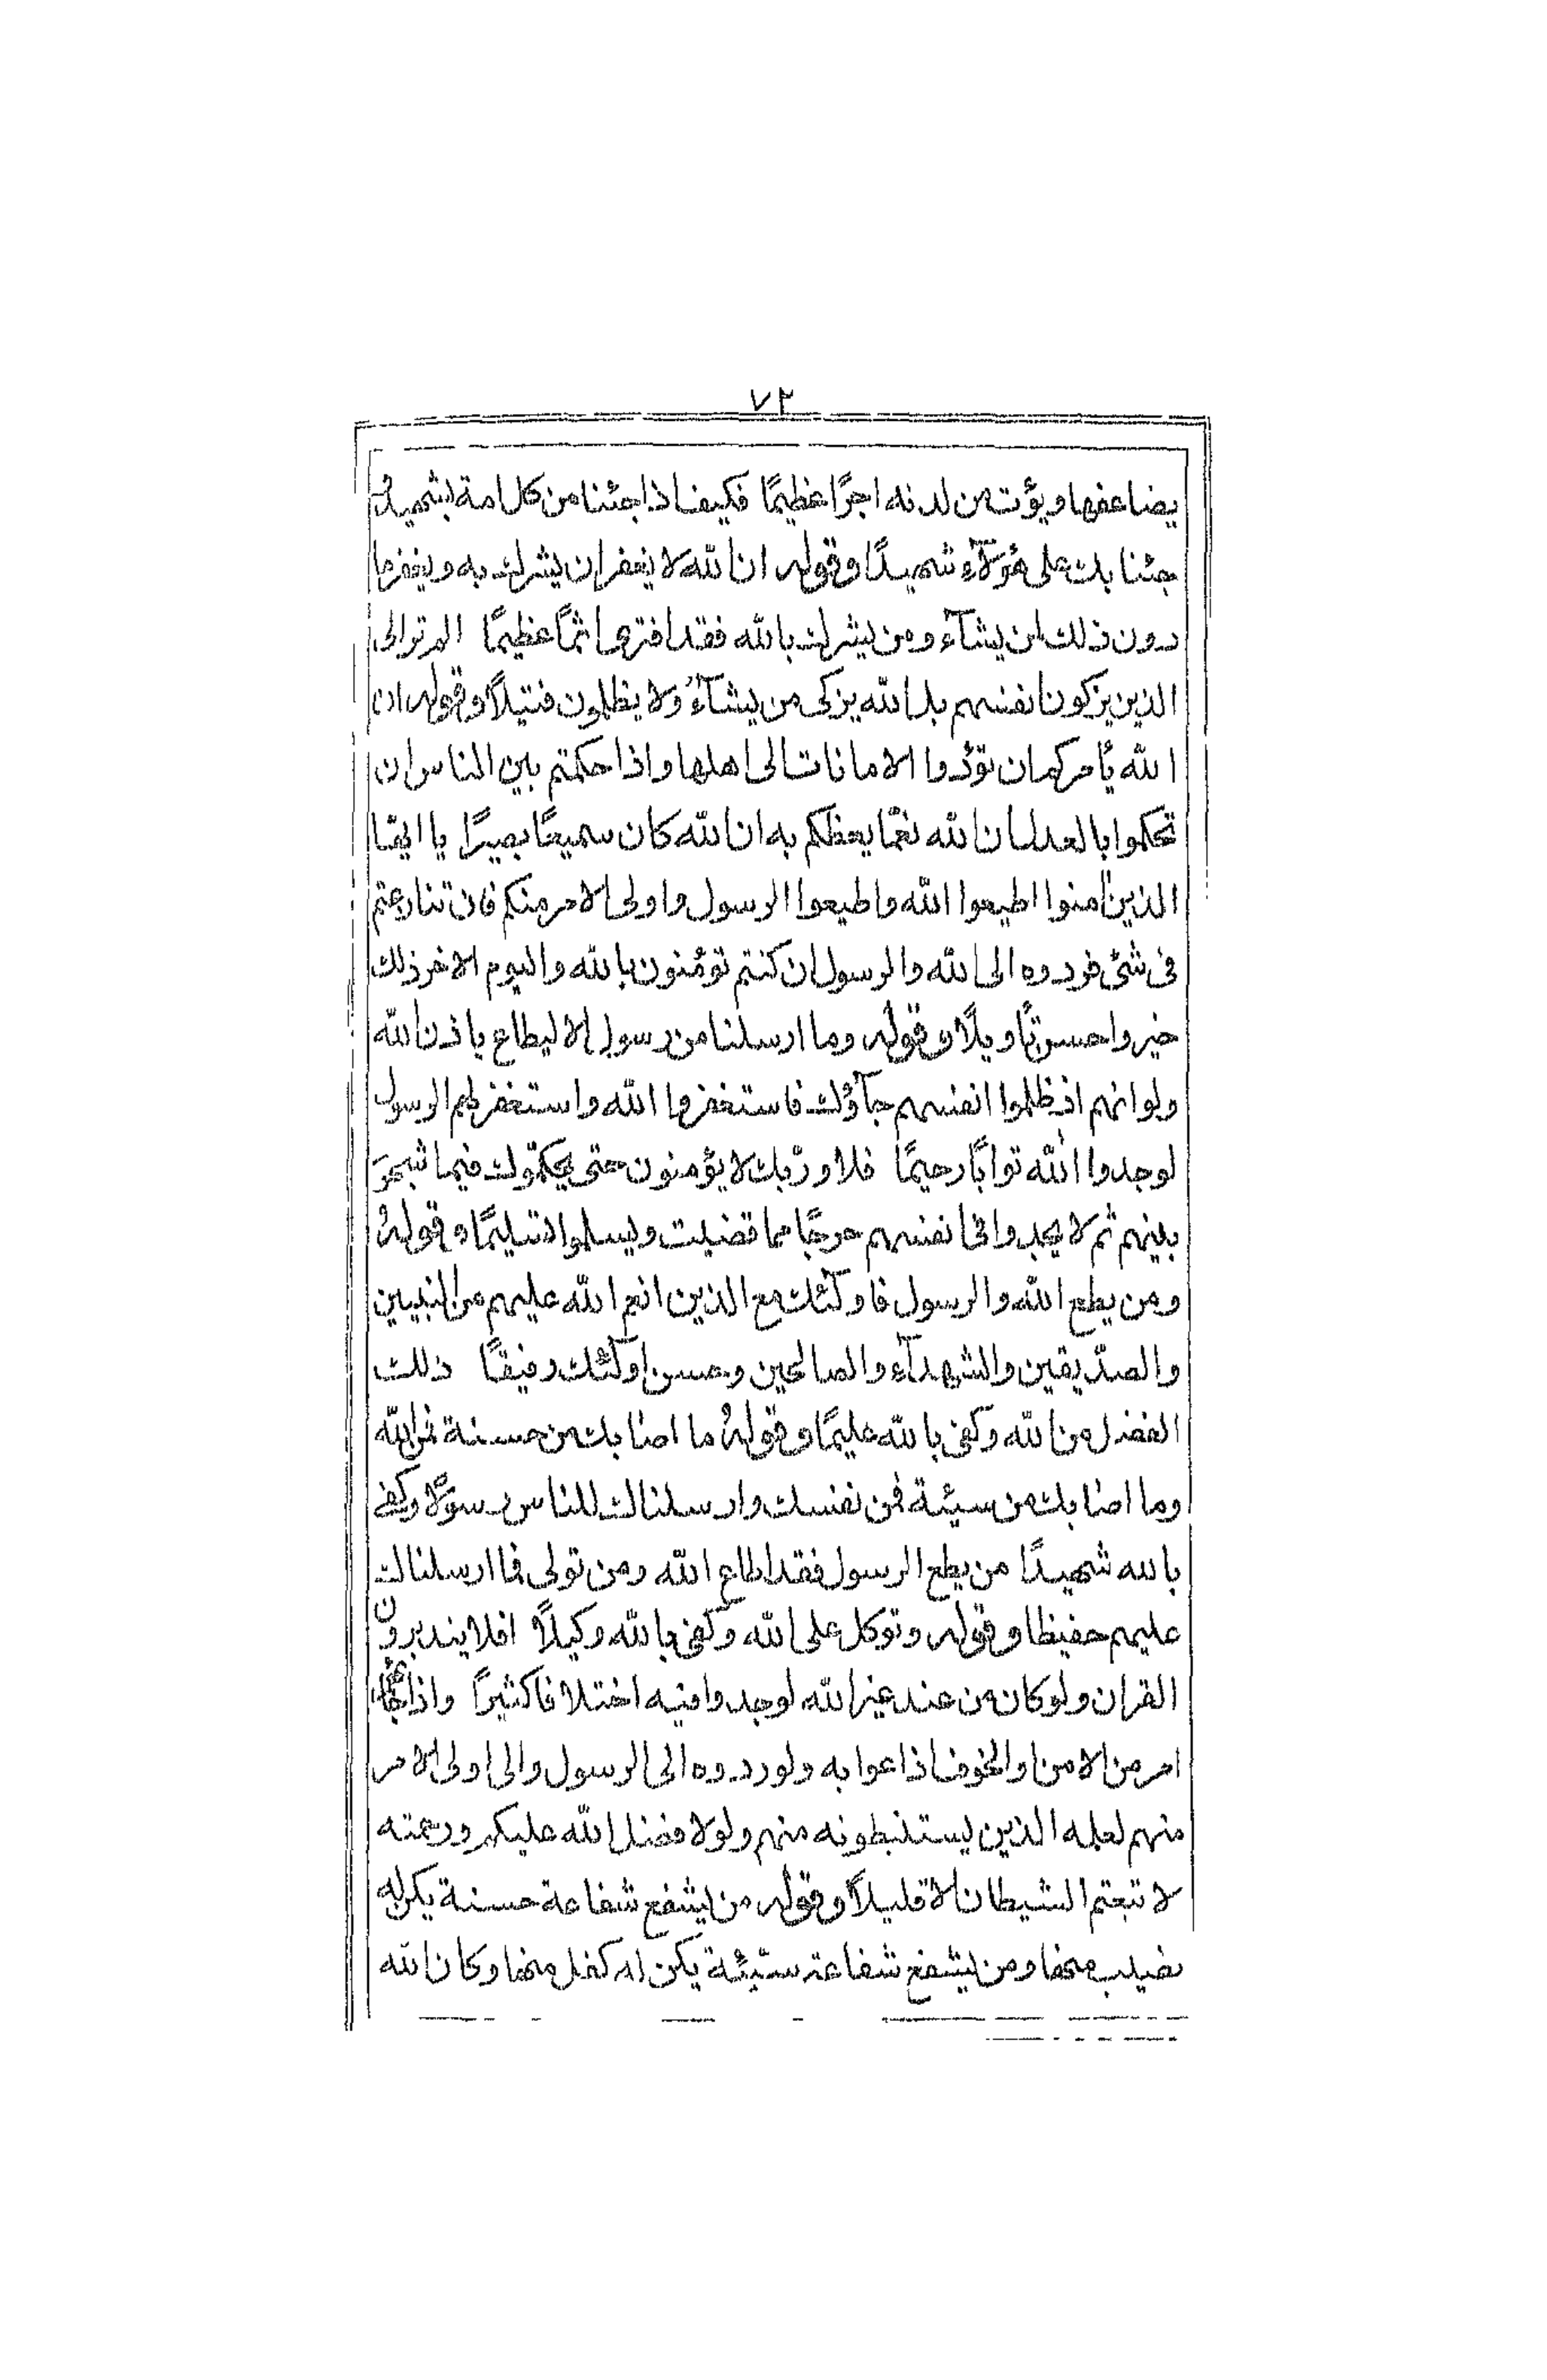 ٧٢
يضاعفها ويؤت من لدنه اجرًا عظيمًا فكيف اذا جئنا من كل امة بشهيد و
جئنا بك على هؤلآء شهيدًا وقوله ان الله لا يغفر ان يشرك به ويغفر ما
دون ذلك لمن يشآء ومن يشرك بالله فقد افترى اثمًا عظيمًا الم تر الى
الذين يزكون انفسهم بل الله يزكى من يشآءُ ولا يظلمون فتيلًا وقوله ان
الله يأمركم ان تؤدوا الامانات الى اهلها واذا حكمتم بين الناس ان
تحكموا بالعدل ان الله نعمّا يعظكم به ان الله كان سميعًا بصيرًا يا ايها
الذين امنوا اطيعوا الله واطيعوا الرسول واولى الامر منكم فان تنازعتم
فى شئ فردوه الى الله والرسول ان كنتم تؤمنون بالله واليوم الاخر ذلك
خير واحسن تأويلًا وقوله وما ارسلنا من رسول الا ليطاع باذن الله
ولو انهم اذ ظلموا انفسهم جآؤك فاستغفروا الله واستغفر لهم الرسول
لوجدوا الله توابًا رحيمًا فلا وربّك لا يؤمنون حتى يحكّموك فيما شجرَ
بينهم ثم لا يجدوا فى انفسهم حرجًا مما قضيت ويسلموا تسليمًا وقولهُ
ومن يطع الله والرسول فاولٰئك مع الذين انعم الله عليهم من النبيين
والصدّيقين والشهدآء والصالحين وحسن اولٰئك رفيقًا ذلك
الفضل من الله وكفى بالله عليمًا وقولهُ ما اصابك من حسنة فمن الله
وما اصابك من سيئة فمن نفسك وارسلناك للناس رسولًا وكفى
بالله شهيدًا من يطع الرسول فقد اطاع الله ومن تولى فما ارسلناك
عليهم حفيظا وقوله وتوكل على الله وكفى بالله وكيلًا افلا يتدبرون
القران ولو كان من عند غير الله لوجدوا فيه اختلافا كثيرًا واذا جآءهم
امر من الامن او الخوف اذاعوا به ولو ردوه الى الرسول والى اولى الامر
منهم لعلمه الذين يستنبطونه منهم ولولا فضل الله عليكم ورحمته
لا تبعتم الشيطان الا قليلًا وقوله من يشفع شفاعة حسنة يكن له
نصيب منها ومن يشفع شفاعة سيّئة يكن له كفل منها وكان الله